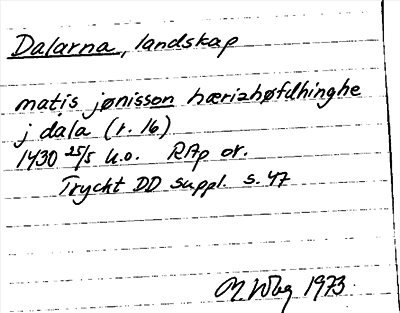 Dalarna, landskap
matis jønisson hærizhøfdhinghe
j dala (r. 16)
1430 25/5 u.o. RAp or.
Tryckt DD suppl. s. 47
1973